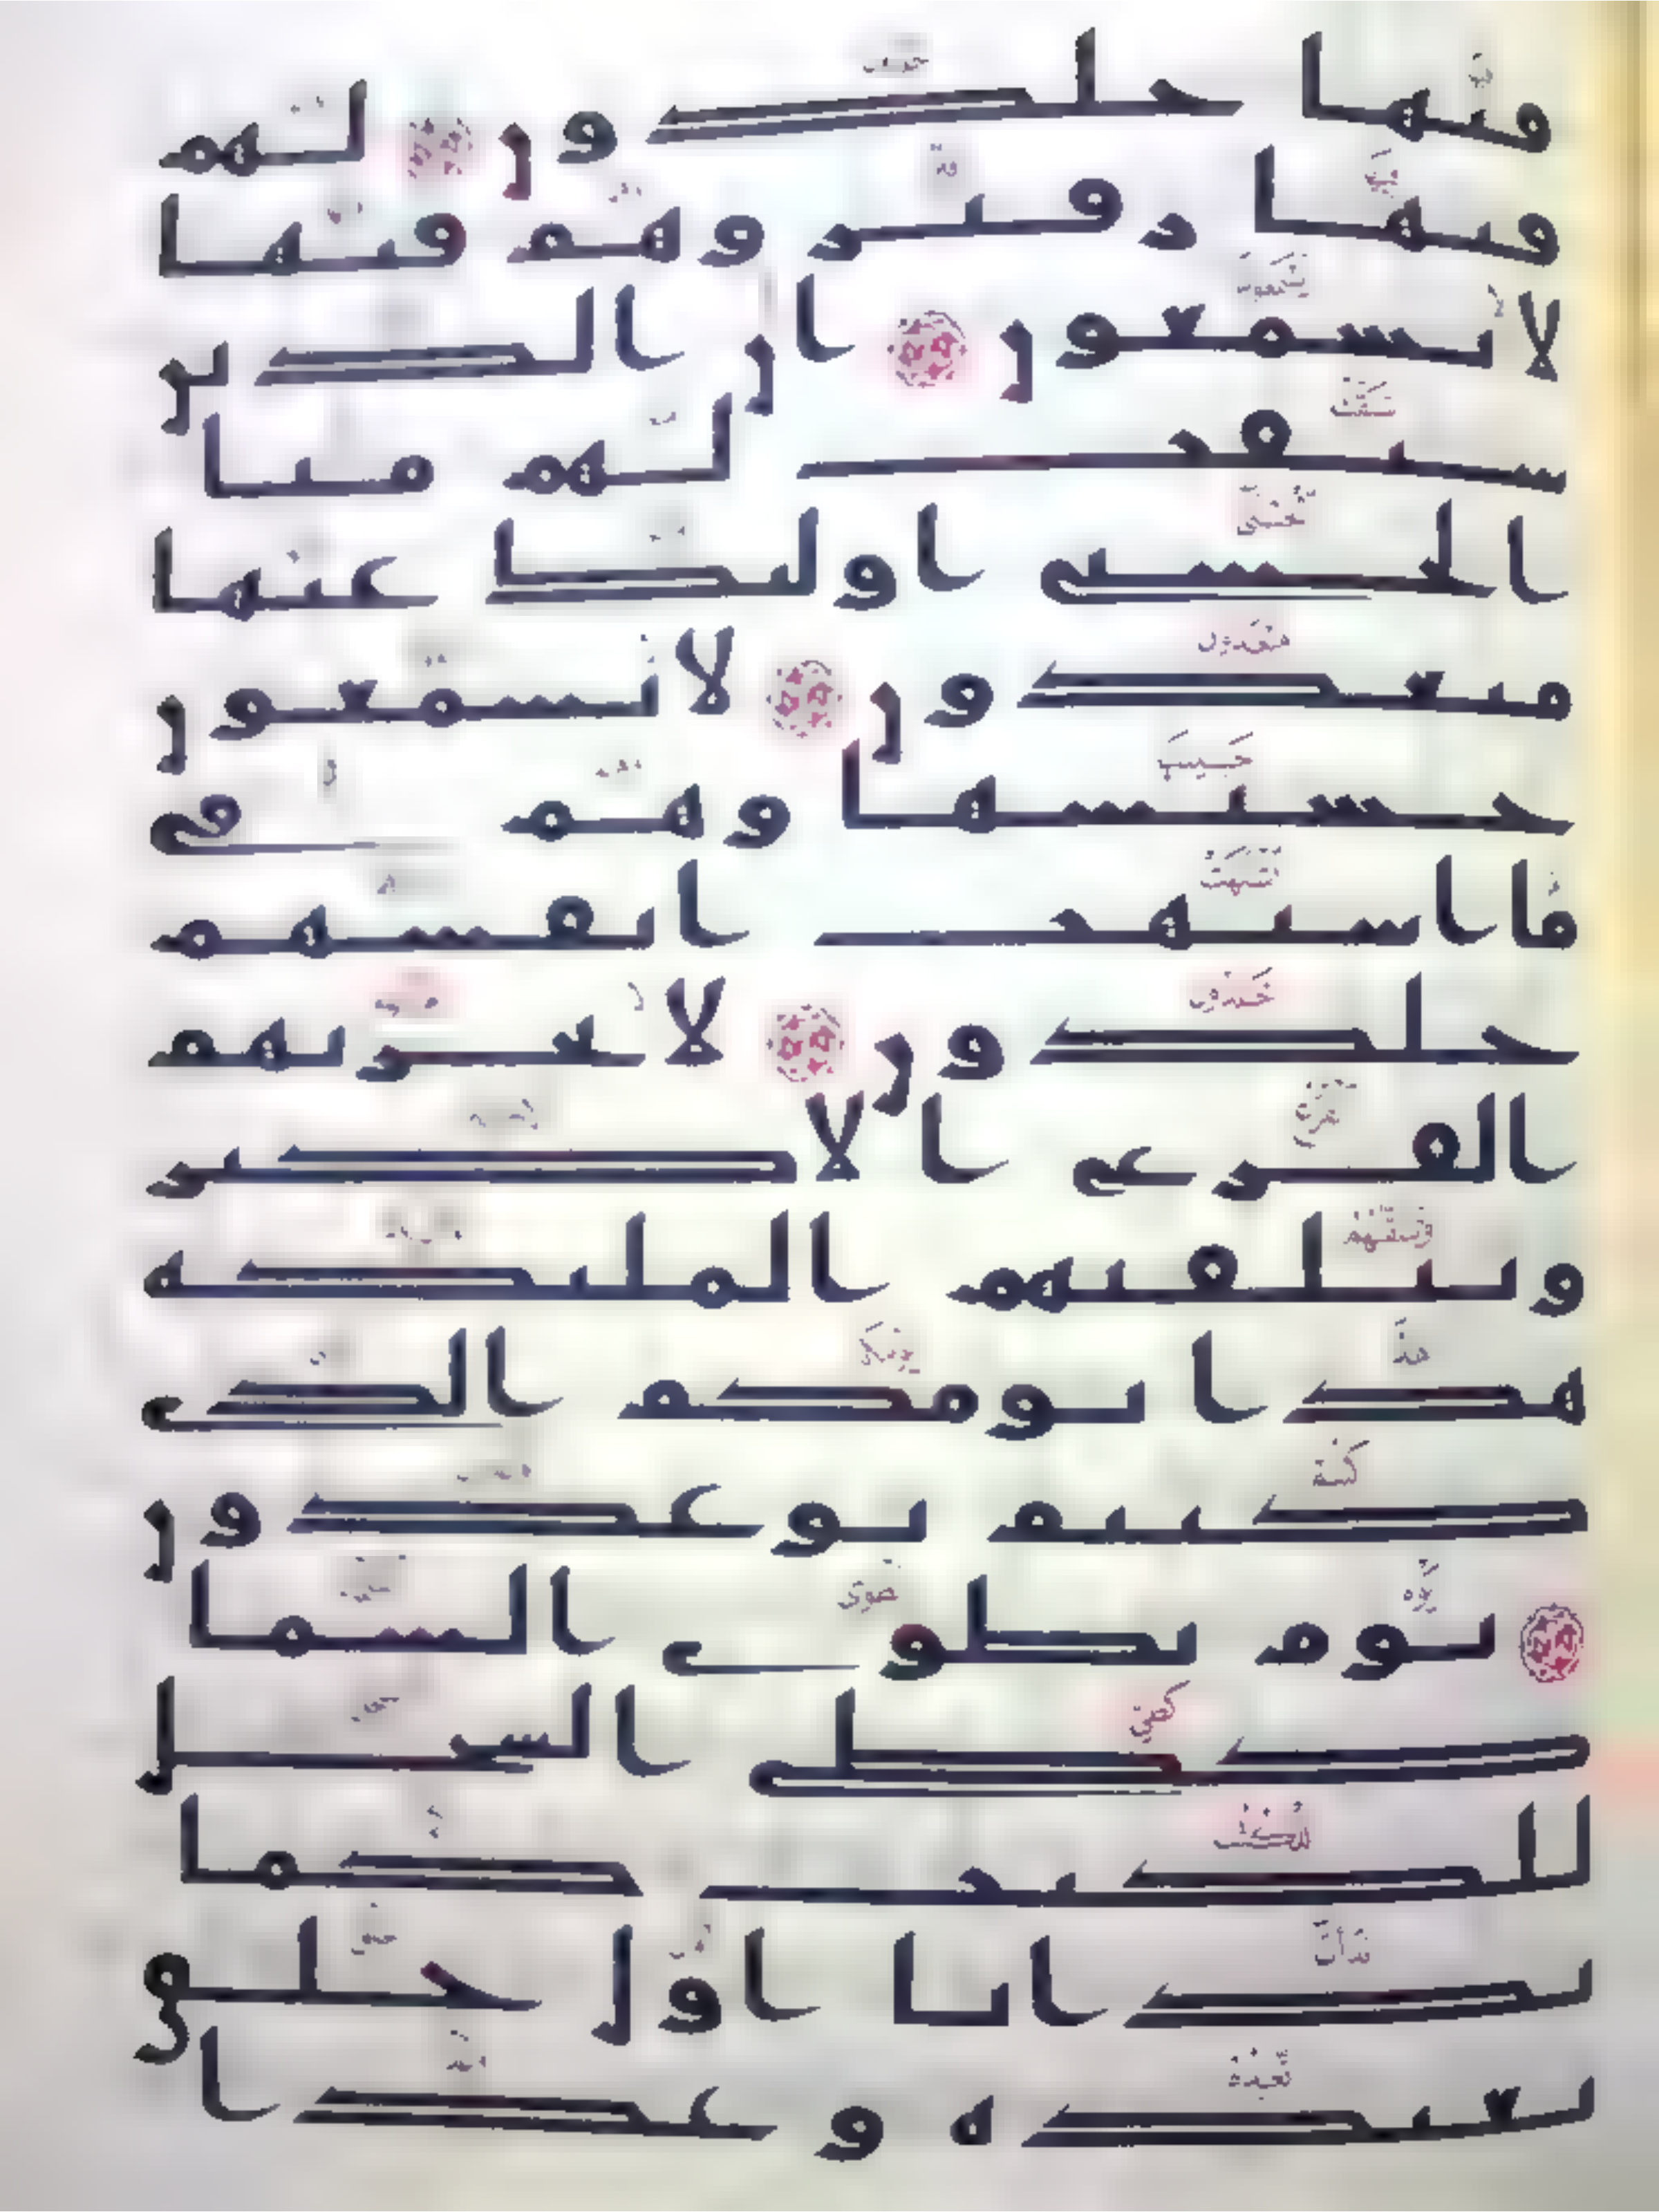 فيها خلدون لهم
فيها زفير وهم فيها
لا يسمعون ان الذين
سبقت لهم منا
الحسنى اولئك عنها
مبعدون لا يسمعون
حسيسها وهم في
ما اشتهت انفسهم
خلدون لا يحزنهم
الفزع الاكبر
وتتلقيهم الملئكة
هذا يومكم الذي
كنتم توعدون
يوم نطوي السما
كطي السجل
للكتب كما
بدانا اول خلق
نعيده وعدا